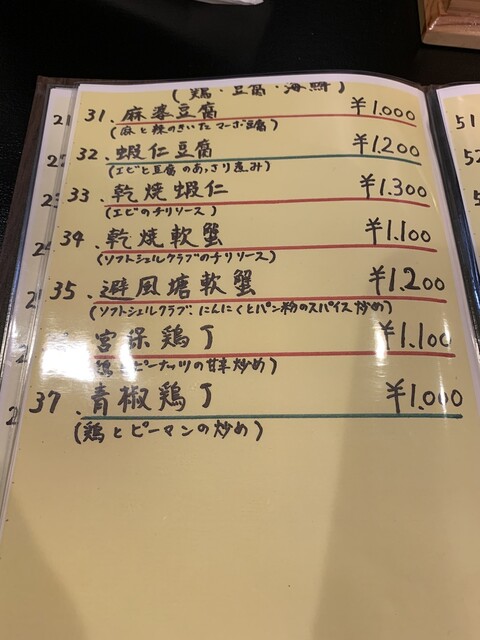 (鶏・豆腐・海鮮)
31. 麻婆豆腐 ¥1.000
(麻と辣のきいたマーボ豆腐)
32. 蝦仁豆腐 ¥1.200
(エビと豆腐のあっさり煮み)
33. 乾焼蝦仁 ¥1.300
(エビのチリソース)
34. 乾焼軟蟹 ¥1.100
(ソフトシェルクラブのチリソース)
35. 避風塘軟蟹 ¥1.200
(ソフトシェルクラブ、にんにくとパン粉のスパイス炒め)
宮保鶏丁 ¥1.100
(鶏とピーナッツの甘辛炒め)
37. 青椒鶏丁 ¥1.000
(鶏とピーマンの炒め)
51
52